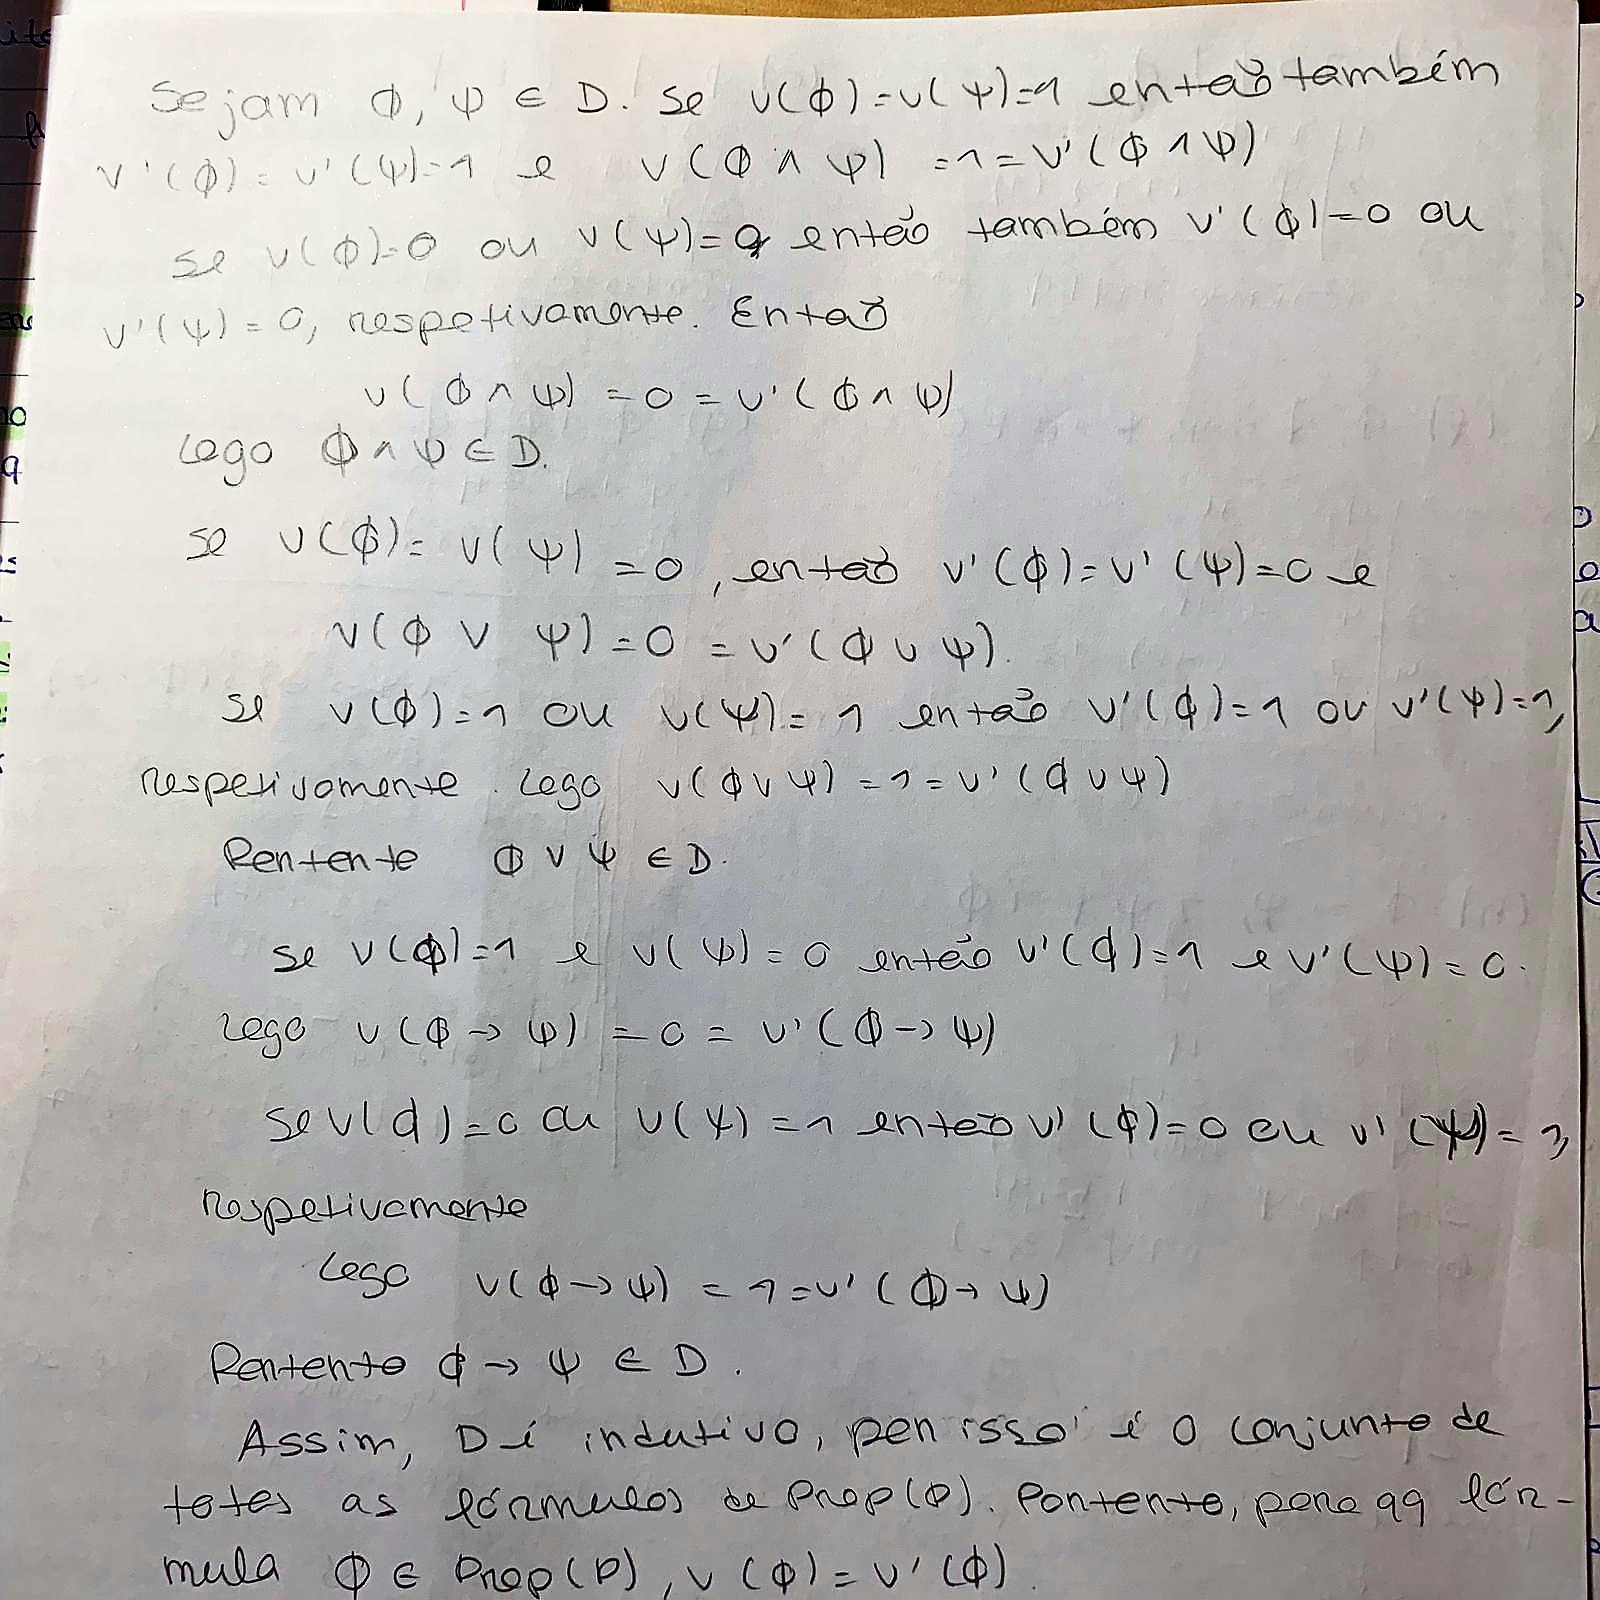 Sejam ϕ, ψ ∈ D. Se v(ϕ)=v(ψ)=1 então também
v'(ϕ)=v'(ψ)=1 e v(ϕ ∧ ψ) =1=v'(ϕ ∧ ψ)
se v(ϕ)=0 ou v(ψ)=0, então também v'(ϕ)=0 ou
v'(ψ)=0, respetivamente. Então
v(ϕ ∧ ψ) =0=v'(ϕ ∧ ψ)
Logo ϕ ∧ ψ ∈ D.
se v(ϕ)= v(ψ) =0, então v'(ϕ)=v'(ψ)=0 e
v(ϕ ∨ ψ)=0 =v'(ϕ ∨ ψ).
se v(ϕ)=1 ou v(ψ)=1 então v'(ϕ)=1 ou v'(ψ)=1,
respetivamente. Logo v(ϕ∨ψ)=1=v'(ϕ ∨ ψ)
Portanto ϕ ∨ ψ ∈ D.
se v(ϕ)=1 e v(ψ)=0 então v'(ϕ)=1 e v'(ψ)=0.
Logo v(ϕ→ψ) =0= v'(ϕ→ψ)
se v(ϕ)=0 ou v(ψ)=1 então v'(ϕ)=0 ou v'(ψ)=1,
respetivamente
Logo v(ϕ→ψ) =1=v'(ϕ→ψ)
Portanto ϕ→ψ ∈ D.
Assim, D é indutivo, por isso é o conjunto de
todas as fórmulas de Prop(P). Portanto, para qq fór-
mula ϕ ∈ Prop(P), v(ϕ)=v'(ϕ).